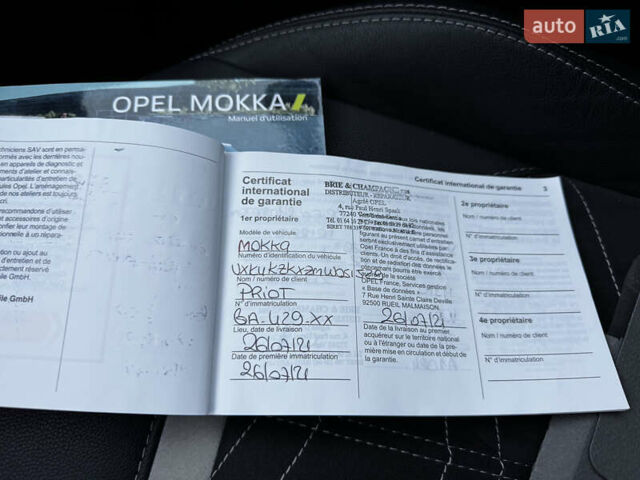 auto RIA
.com
OPEL MOKKA
Manuel d'utilisation
chniciens SAV sont en perma-
formés avec les dernières nou-
en appareils de diagnostic et
particularités d'entretien de
ules Opel. L'aménagement
de nos ateliers est toujours
recommandons d'utiliser
t accessoires d'origine
onfier leur montage de
sionnelle à un répara-
ation ou ajout au
'entretien et du
ctement réservé
ile GmbH.
ile GmbH
Certificat international de garantie 3
Certificat
international
de garantie
1er propriétaire
Modèle du véhicule
MOKKA
Numéro d'identification du véhicule
Nom / numéro de client
PRIOT
N° d'immatriculation
GA.429.XX
Lieu, date de livraison
26/07/21
Date de première immatriculation
26/07/21
BRIE & CHAMPAGNE
DISTRIBUTEUR - RÉPARATEUR
Agréé OPEL
4, rue Paul Henri Spaak
77240
lois nationales
personnel
figurant au présent carnet d'entretien
seront exclusivement utilisées par
Opel France à des fins d'assistance
clients. Un droit d'accès, de rectifica-
tion et de radiation des données le
concernant pourra être exercé
de la société
OPEL France, Services gestion
« Base de données »
7 Rue Henri Sainte Claire Deville
92500 RUEIL MALMAISON.
26/07/21
Date de la livraison au premier
acquéreur sur le territoire national
ou à l'étranger ou date de la pre-
mière mise en circulation et début de
la garantie.
2e propriétaire
Nom / numéro de client
N° d'immatriculation
3e propriétaire
Nom / numéro de client
N° d'immatriculation
4e propriétaire
Nom / numéro de client
N° d'immatriculation